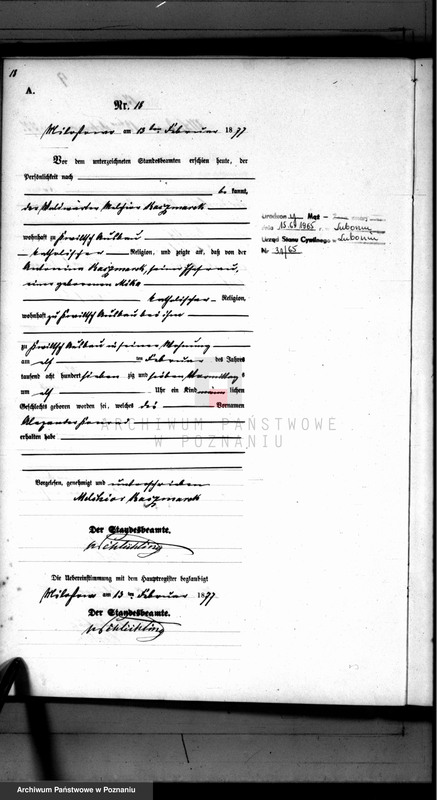 18
A.
Nr. 18
Miloslaw am 13 ten Februar 1877
Vor dem unterzeichneten Standesbeamten erschien heute, der
Persönlichkeit nach
be kannt,
der Waldwärter Melchior Kaczmarek
wohnhaft zu
katholischer Religion, und zeigte an, daß von der
Antonina Kaczmarek, seiner Ehefrau,
einer gebornen
katholischer Religion,
wohnhaft zu bei ihm
zu in seiner Wohnung
am elf ten Februar des Jahres
tausend acht hundert sieben zig und sieben Vormittag s
um elf Uhr ein Kind männ lichen
Geschlechts geboren worden sei, welches den Vornamen
Alexander
erhalten habe
Vorgelesen, genehmigt und unterschrieben
Melchior Kaczmarek
Der Standesbeamte.
Die Uebereinstimmung mit dem Hauptregister beglaubigt
Miloslaw am 13 ten Februar 1877
Der Standesbeamte.
dnia 15.6.1965 r. w Luboniu
Urząd Stanu Cywilnego w Luboniu
Nr 34/65
ARCHIWUM PAŃSTWOWE
W POZNANIU
Archiwum Państwowe w Poznaniu